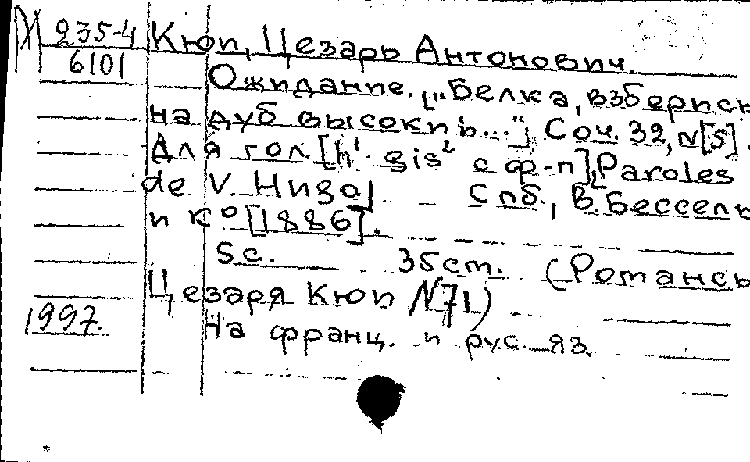 М 235-4
6101
Кюи, Цезарь Антонович.
Ожидание. ["Белка, взберись
на дуб высокий..."] Соч. 32, N[5].
Для гол. [h¹-gis² с ф-п], Paroles
de V. Hugo] - Спб., В. Бессель
и К° [1886].
5 с. 35 ст. (Романсы
Цезаря Кюи N71)
На франц. и рус. яз.
1997.